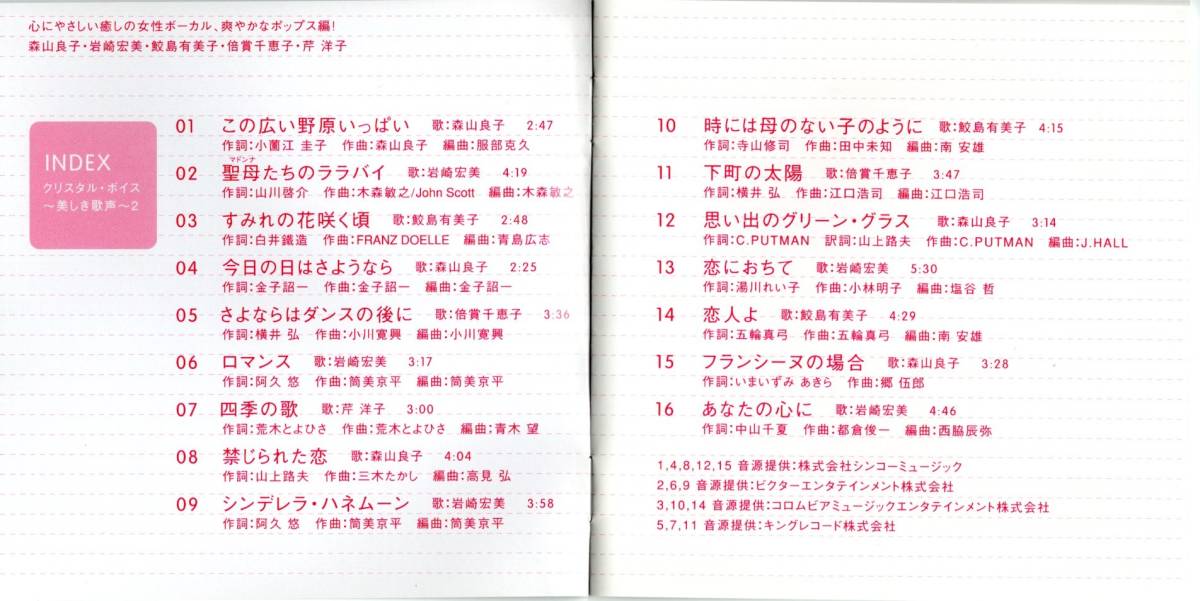 心にやさしい癒しの女性ボーカル、爽やかなポップス編!
森山良子・岩崎宏美・鮫島有美子・倍賞千恵子・芹 洋子
INDEX
クリスタル・ボイス
〜美しき歌声〜2
01 この広い野原いっぱい 歌:森山良子 2:47
作詞:小薗江 圭子 作曲:森山良子 編曲:服部克久
マドンナ
02 聖母たちのララバイ 歌:岩崎宏美 4:19
作詞:山川啓介 作曲:木森敏之/John Scott 編曲:木森敏之
03 すみれの花咲く頃 歌:鮫島有美子 2:48
作詞:白井鐵造 作曲:FRANZ DOELLE 編曲:青島広志
04 今日の日はさようなら 歌:森山良子 2:25
作詞:金子詔一 作曲:金子詔一 編曲:金子詔一
05 さよならはダンスの後に 歌:倍賞千恵子 3:36
作詞:横井 弘 作曲:小川寛興 編曲:小川寛興
06 ロマンス 歌:岩崎宏美 3:17
作詞:阿久 悠 作曲:筒美京平 編曲:筒美京平
07 四季の歌 歌:芹 洋子 3:00
作詞:荒木とよひさ 作曲:荒木とよひさ 編曲:青木 望
08 禁じられた恋 歌:森山良子 4:04
作詞:山上路夫 作曲:三木たかし 編曲:高見 弘
09 シンデレラ・ハネムーン 歌:岩崎宏美 3:58
作詞:阿久 悠 作曲:筒美京平 編曲:筒美京平
10 時には母のない子のように 歌:鮫島有美子 4:15
作詞:寺山修司 作曲:田中未知 編曲:南 安雄
11 下町の太陽 歌:倍賞千恵子 3:47
作詞:横井 弘 作曲:江口浩司 編曲:江口浩司
12 思い出のグリーン・グラス 歌:森山良子 3:14
作詞:C.PUTMAN 訳詞:山上路夫 作曲:C.PUTMAN 編曲:J.HALL
13 恋におちて 歌:岩崎宏美 5:30
作詞:湯川れい子 作曲:小林明子 編曲:塩谷 哲
14 恋人よ 歌:鮫島有美子 4:29
作詞:五輪真弓 作曲:五輪真弓 編曲:南 安雄
15 フランシーヌの場合 歌:森山良子 3:28
作詞:いまいずみ あきら 作曲:郷 伍郎
16 あなたの心に 歌:岩崎宏美 4:46
作詞:中山千夏 作曲:都倉俊一 編曲:西脇辰弥
1,4,8,12,15 音源提供:株式会社シンコーミュージック
2,6,9 音源提供:ビクターエンタテインメント株式会社
3,10,14 音源提供:コロムビアミュージックエンタテインメント株式会社
5,7,11 音源提供:キングレコード株式会社